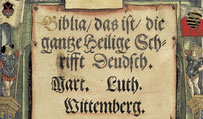 Biblia/ das ist/ die
gantze Heilige Sch-
rifft Deudsch.
Mart. Luth.
Wittemberg.